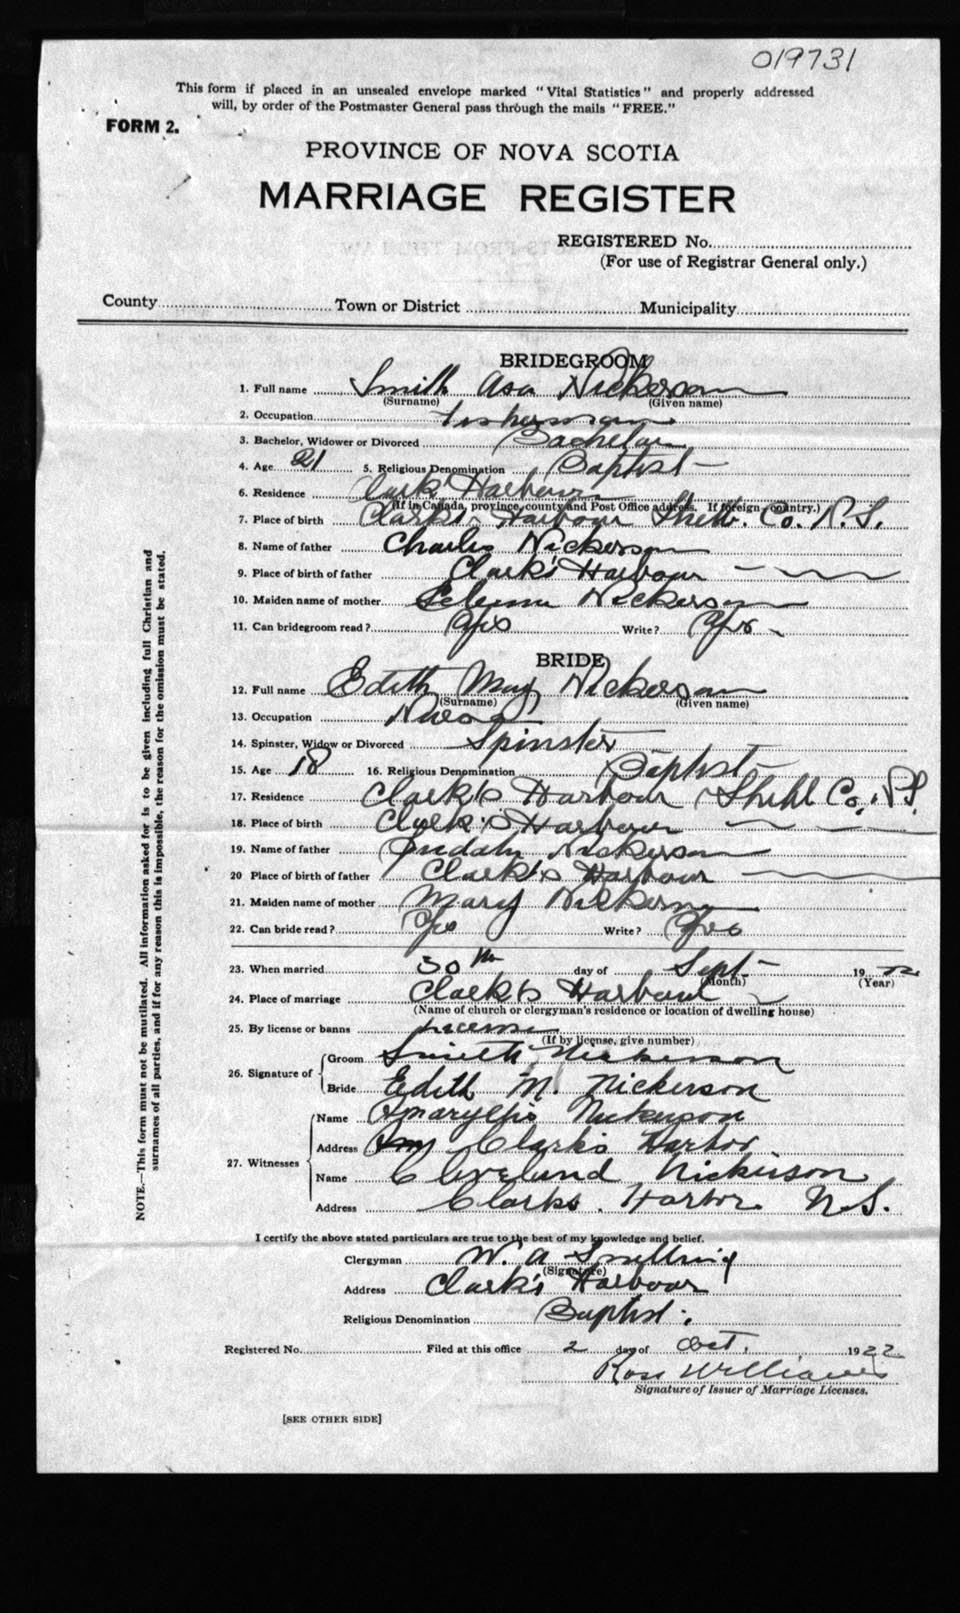 019731
This form if placed in an unsealed envelope marked "Vital Statistics" and properly addressed
will, by order of the Postmaster General pass through the mails "FREE."
FORM 2.
PROVINCE OF NOVA SCOTIA
MARRIAGE REGISTER
REGISTERED No.
(For use of Registrar General only.)
County Town or District Municipality
BRIDEGROOM
1. Full name Smith Asa Nickerson
(Surname) (Given name)
2. Occupation Fisherman
3. Bachelor, Widower or Divorced Bachelor
4. Age 21 5. Religious Denomination Baptist
6. Residence Clark's Harbour
(If in Canada, province, county and Post Office address. If foreign country.)
7. Place of birth Clark's Harbour Shelb. Co. N.S.
8. Name of father Charles Nickerson
9. Place of birth of father Clark's Harbour
10. Maiden name of mother Nickerson
11. Can bridegroom read? Yes Write? Yes
BRIDE
12. Full name Edith May Nickerson
(Surname) (Given name)
13. Occupation
14. Spinster, Widow or Divorced Spinster
15. Age 18 16. Religious Denomination Baptist
17. Residence Clark's Harbour Shelb Co. N.S.
18. Place of birth Clark's Harbour
19. Name of father Nickerson
20 Place of birth of father Clark's Harbour
21. Maiden name of mother Mary Nickerson
22. Can bride read? Yes Write? Yes
23. When married 30th day of Sept 19 22
(Month) (Year)
24. Place of marriage Clark's Harbour
(Name of church or clergyman's residence or location of dwelling house)
25. By license or banns License
(If by license, give number)
26. Signature of Groom Smith Nickerson
Bride Edith M. Nickerson
27. Witnesses Name Amaryllis Nickerson
Address Clark's Harbor
Name Cleveland Nickerson
Address Clarks. Harbor N.S.
I certify the above stated particulars are true to the best of my knowledge and belief.
Clergyman W. A. Snelling
(Signature)
Address Clark's Harbour
Religious Denomination Baptist.
Registered No. Filed at this office 2 day of Oct. 1922
Ross Williams
Signature of Issuer of Marriage Licenses.
[SEE OTHER SIDE]
NOTE.—This form must not be mutilated. All information asked for is to be given including full Christian and
surnames of all parties, and if for any reason this is impossible, the reason for the omission must be stated.